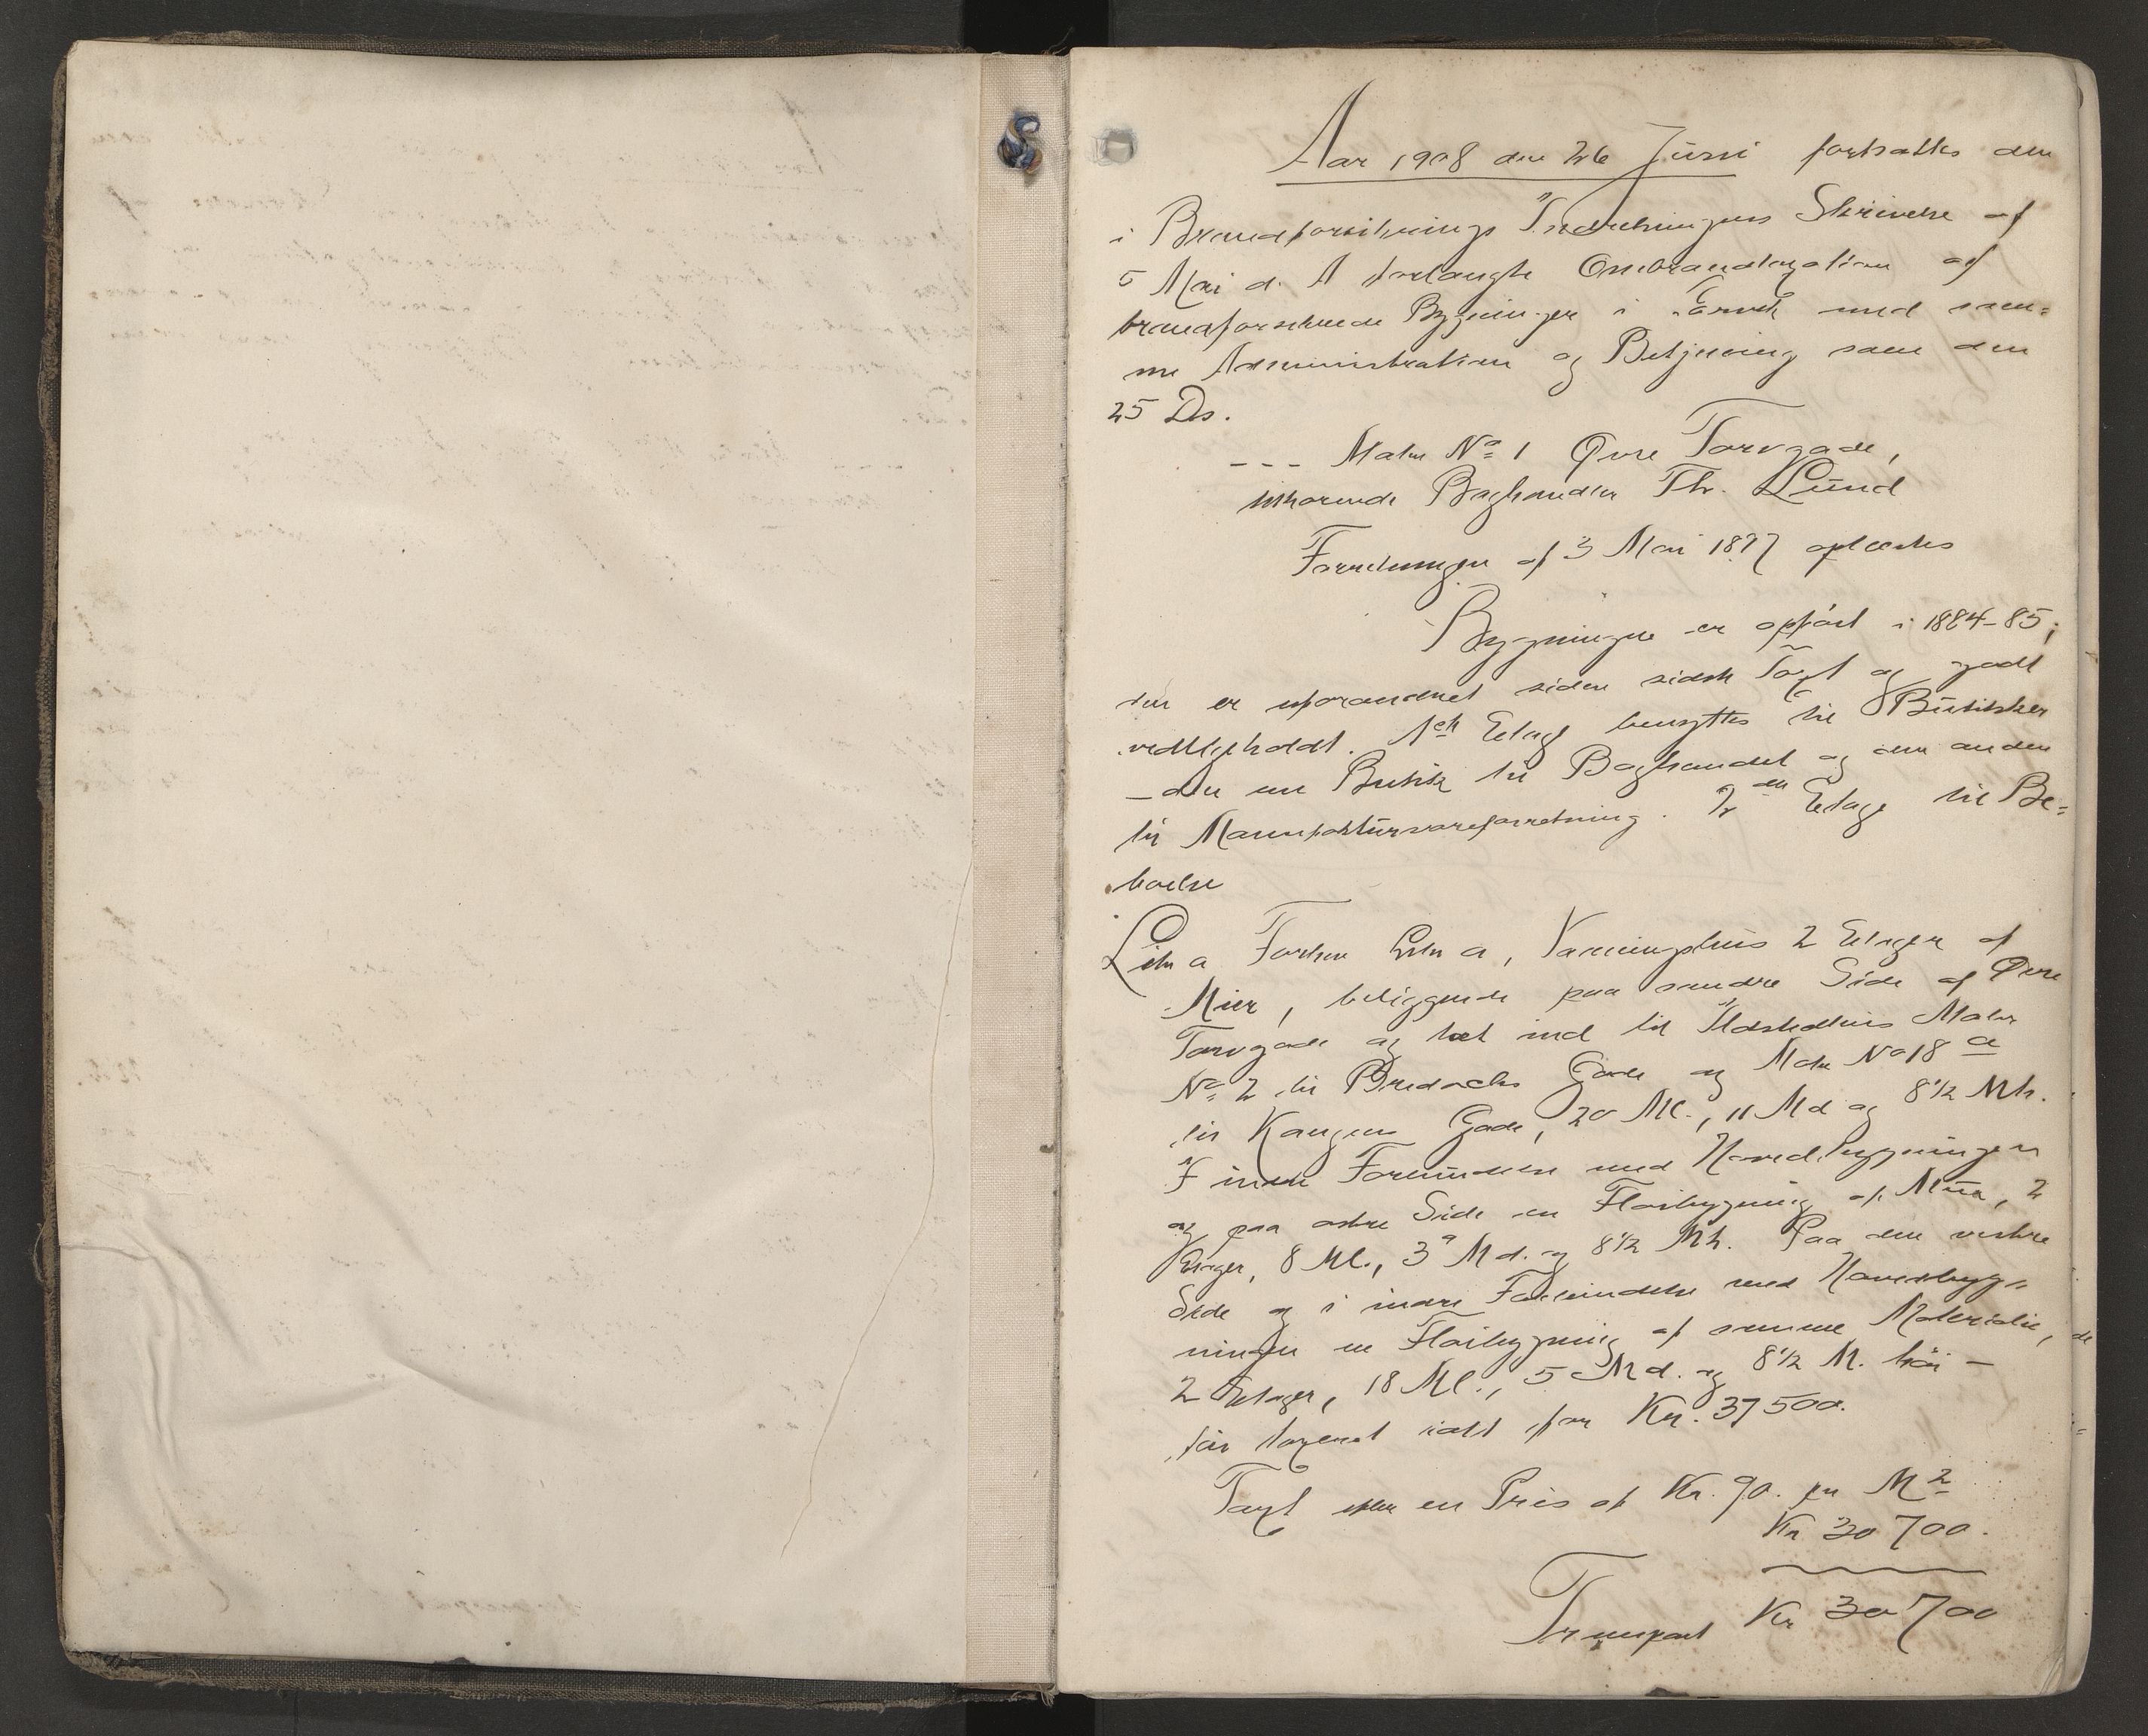 Aar 1908 den 26 Juni fortsattes den
i Brandforsikrings Indretningens Skrivelse af
5 Mai d. A forlangte Ombrandtaxation af
brandforsikrede Bygninger i Larvik med sam-
me Administration og Betjening som den
25 Ds.
--- Matr Nº 1 Øvre Torvgade,
tilhørende Boghandler Th. Lund
Forretningen af 3 Mai 1897 oplæstes
Bygningen er opført i 1884-85;
den er uforandret siden sidste Taxt og godt
vedligeholdt. 1ste Etage benyttes til Butikker
- den ene Butik til Boghandel og den anden
til Manufakturvareforretning. 2den Etage til Be-
boelse
Litr a Forhen Litr a, Vaaningshus 2 Etager af
Mur, beliggende paa søndre Side af Øvre
Torvgade og tæt ind til Ildstedhus Matr
Nº 2 til Bredochs Gade og Matr Nº 18 a
til Kongens Gade, 20 Ml., 11 Md og 8 1/2 Mh.
I indre Forbindelse med Hovedbygningen
og paa østre Side en Fløibygning af Mur, 2
Etager, 8 Ml., 3 Md. og 8 1/2 Mh. Paa den vestre
Side og i indre Forbindelse med Hovedbyg-
ningen en Fløibygning af samme Materiale,
2 Etager, 18 Ml., 5 Md. og 8 1/2 M. høi -
før taxeret ialt for Kr. 37500.
Taxt efter en Pris af Kr. 90. pr M2
Kr 30700.
Transport Kr 30700